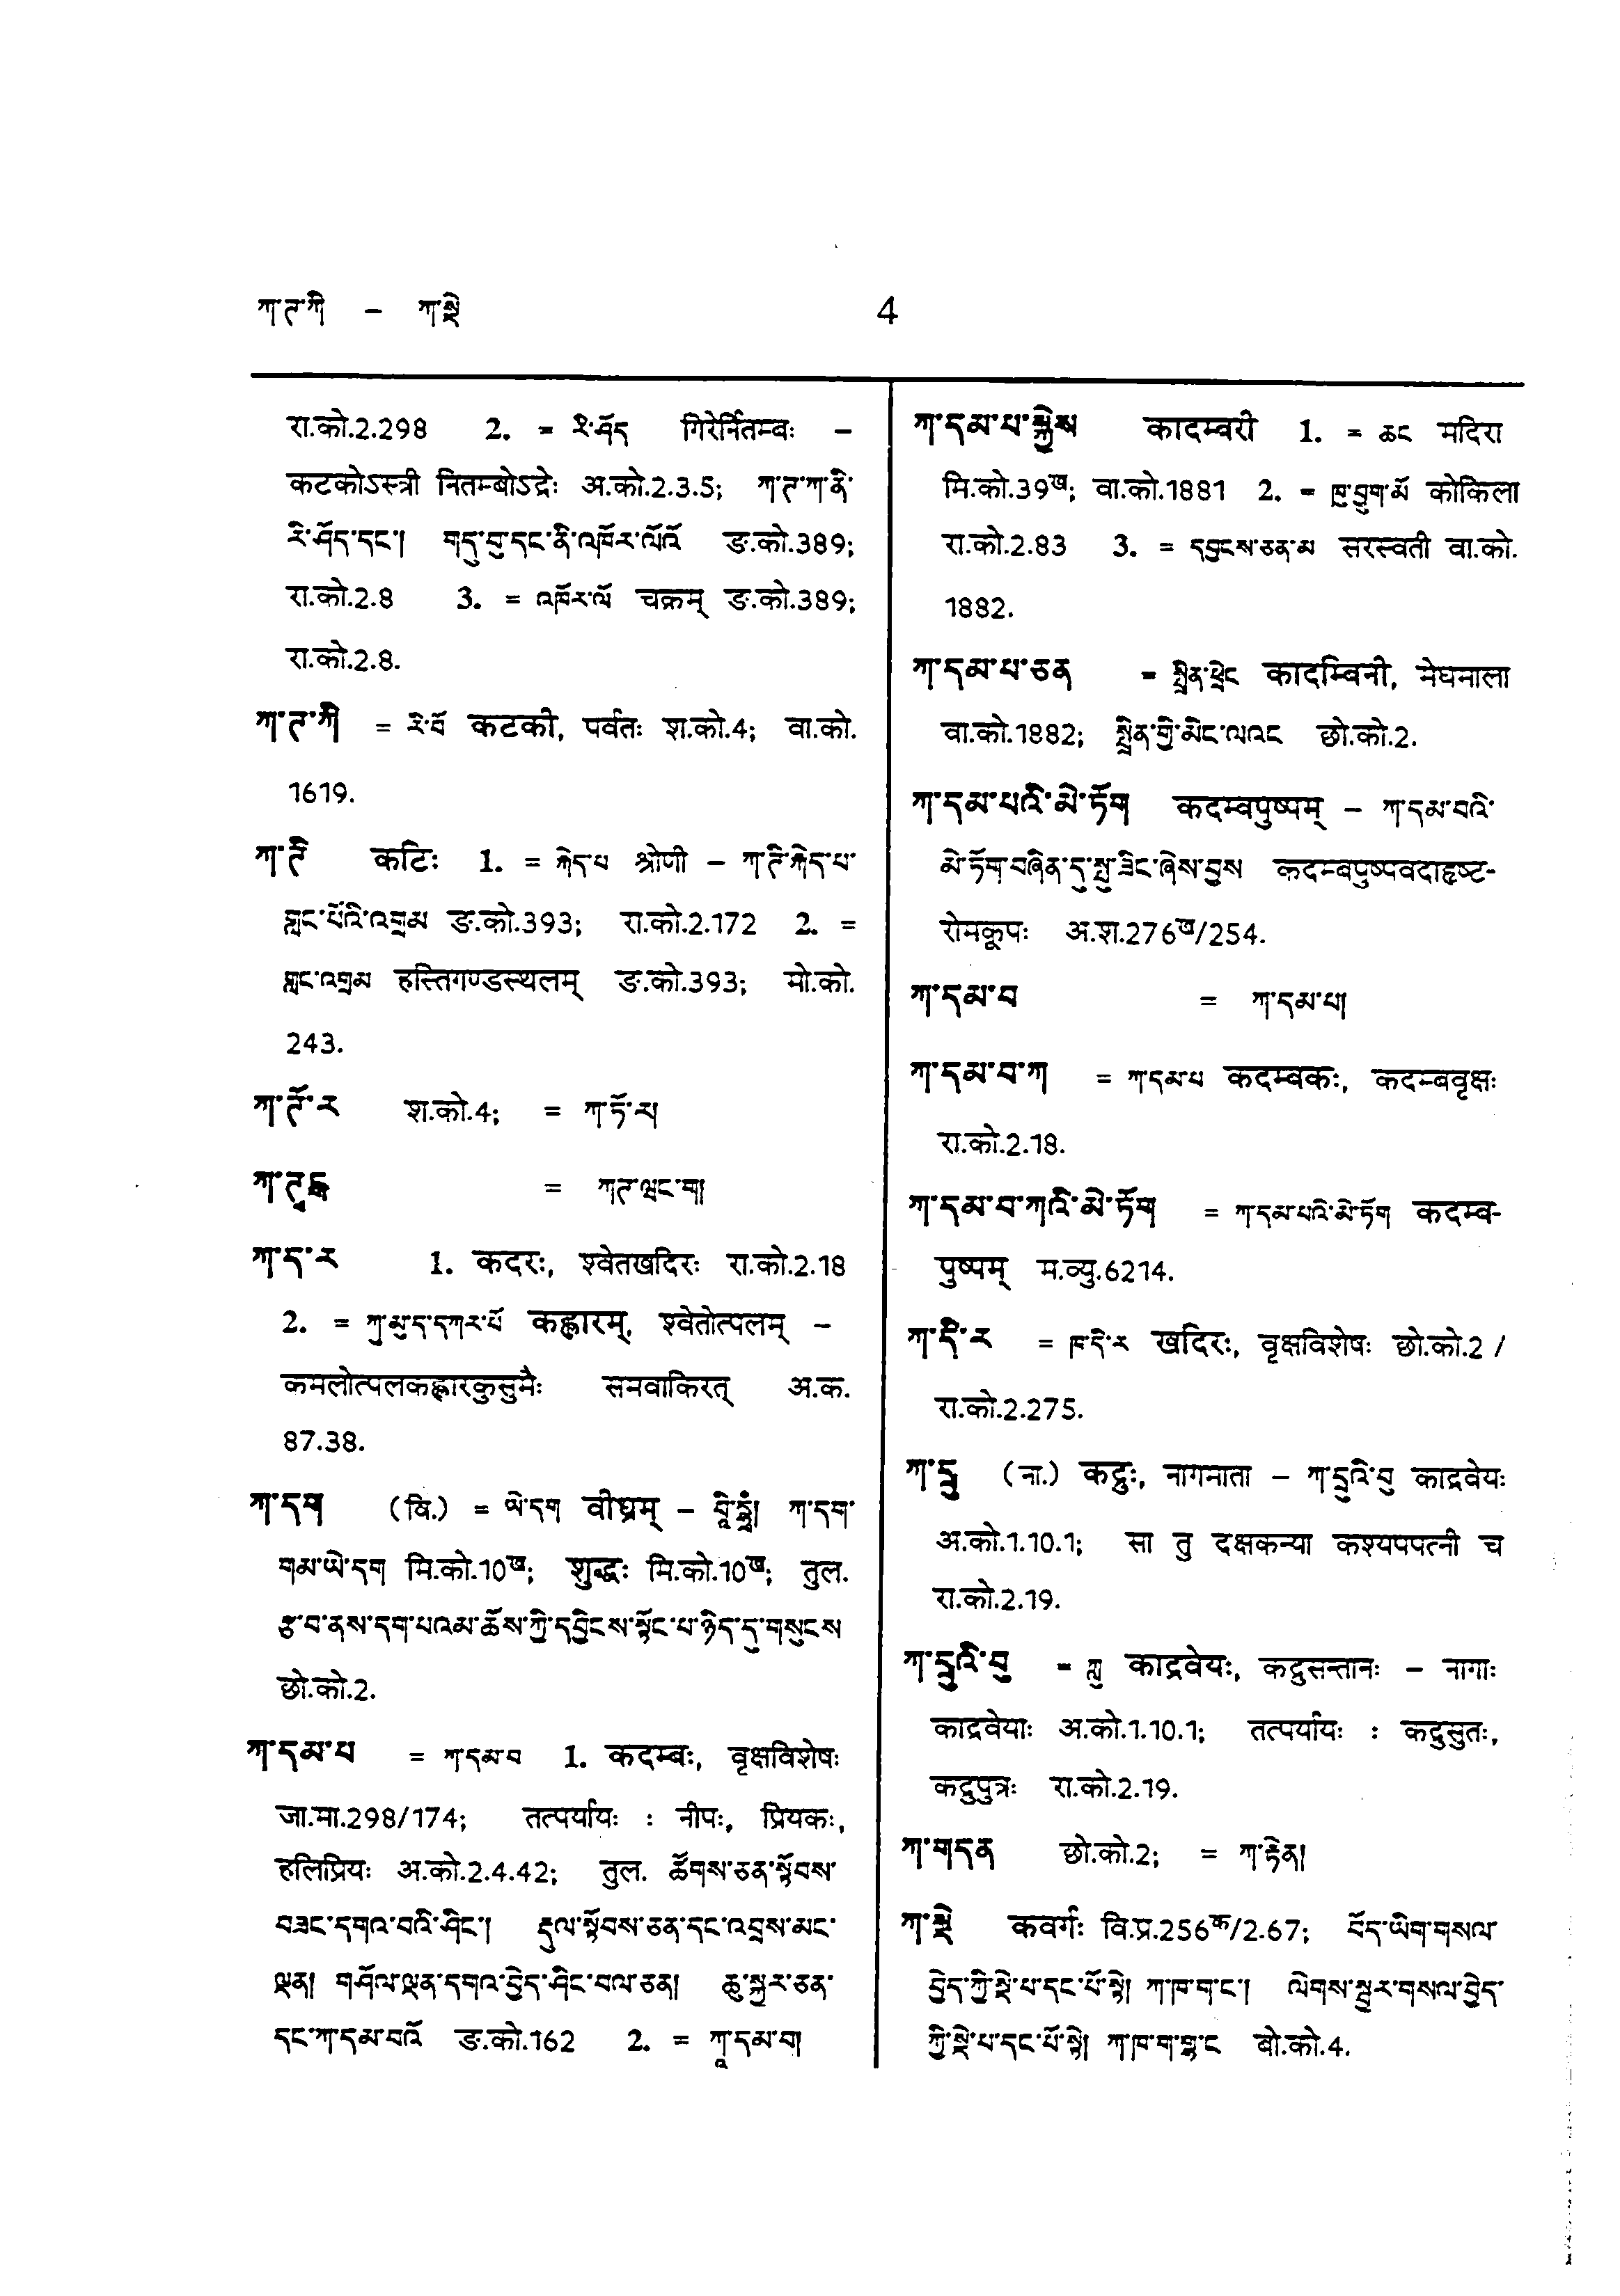 ཀ་ཊ་ཀི – ཀ་སྡེ 4
रा.को.2.298 2. = རི་ཤོད गिरेर्नितम्बः –
कटकोऽस्त्री नितम्बोऽद्रेः अ.को.2.3.5; ཀ་ཊ་ཀ་ནི་
རི་ཤོད་དང་། གདུ་བུ་དང་ནི་འཁོར་ལོའོ ङ.को.389;
रा.को.2.8 3. = འཁོར་ལོ चक्रम् ङ.को.389;
रा.को.2.8.
ཀ་ཊ་ཀི = རི་བོ कटकी, पर्वतः श.को.4; वा.को.
1619.
ཀ་ཊི कटिः 1. = རྐེད་པ श्रोणी – ཀ་ཊི་རྐེད་པ་
གླང་པོའི་འགྲམ ङ.को.393; रा.को.2.172 2. =
གླང་འགྲམ हस्तिगण्डस्थलम् ङ.को.393; मो.को.
243.
ཀ་ཊོ་ར श.को.4; = ཀ་ཏོ་ར།
ཀ་ཊྭཾ = ཀཊ་ཝང་ག།
ཀ་ད་ར 1. कदरः, श्वेतखदिरः रा.को.2.18
2. = ཀུ་མུ་ད་དཀར་པོ कह्लारम्, श्वेतोत्पलम् –
कमलोत्पलकह्लारकुसुमैः समवाकिरत् अ.क.
87.38.
ཀ་དག (वि.) = ཡེ་དག वीघ्रम् – ཀ་དག་
གམ་ཡེ་དག मि.को.10ख; शुद्धः मि.को.10ख; तुल.
རྩ་བ་ནས་དག་པའམ་ཆོས་ཀྱི་དབྱིངས་སྟོང་པ་ཉིད་དུ་གསུངས
छो.को.2.
ཀ་དམ་པ = ཀ་དམ་བ 1. कदम्बः, वृक्षविशेषः
जा.मा.298/174; तत्पर्यायः : नीपः, प्रियकः,
हलिप्रियः अ.को.2.4.42; तुल. ཚོགས་ཅན་སྟོབས་
བཟང་དགའ་བའི་ཤིང་། རྡུལ་སྟོབས་ཅན་དང་འབྲས་མང་
ལྡན། གཤོལ་ལྡན་དགའ་བྱེད་ཤིང་བལ་ཅན། ཆུ་སྐྱར་ཅན་
དང་ཀ་དམ་བའོ ङ.को.162 2. = ཀཱ་དམ་བ།
ཀ་དམ་པ་སྐྱེས कादम्बरी 1. = ཆང मदिरा
मि.को.39ख; वा.को.1881 2. = ཁུ་བྱུག་མོ कोकिला
रा.को.2.83 3. = དབྱངས་ཅན་མ सरस्वती वा.को.
1882.
ཀ་དམ་པ་ཅན = སྤྲིན་ཕྲེང कादम्बिनी, मेघमाला
वा.को.1882; སྤྲིན་གྱི་མིང་ལའང छो.को.2.
ཀ་དམ་པའི་མེ་ཏོག कदम्बपुष्पम् – ཀ་དམ་བའི་
མེ་ཏོག་བཞིན་དུ་སྤུ་ཟིང་ཞེས་བྱས कदम्बपुष्पवदाहृष्ट-
रोमकूपः अ.श.276ख/254.
ཀ་དམ་བ = ཀ་དམ་པ།
ཀ་དམ་བ་ཀ = ཀ་དམ་པ कदम्बकः, कदम्बवृक्षः
रा.को.2.18.
ཀ་དམ་བ་ཀའི་མེ་ཏོག = ཀ་དམ་པའི་མེ་ཏོག कदम्ब-
पुष्पम् म.व्यु.6214.
ཀ་དི་ར = ཁ་དི་ར खदिरः, वृक्षविशेषः छो.को.2 /
रा.को.2.275.
ཀ་དྲུ (ना.) कद्रुः, नागमाता – ཀ་དྲུའི་བུ काद्रवेयः
अ.को.1.10.1; सा तु दक्षकन्या कश्यपपत्नी च
रा.को.2.19.
ཀ་དྲུའི་བུ = ཀླུ काद्रवेयः, कद्रुसन्तानः – नागाः
काद्रवेयाः अ.को.1.10.1; तत्पर्यायः : कद्रुसुतः,
कद्रुपुत्रः रा.को.2.19.
ཀ་གདན छो.को.2; = ཀ་རྟེན།
ཀ་སྡེ कवर्गः वि.प्र.256क/2.67; བོད་ཡིག་གསལ་
བྱེད་ཀྱི་སྡེ་པ་དང་པོ་སྟེ། ཀ་ཁ་ག་ང་། ལེགས་སྦྱར་གསལ་བྱེད་
ཀྱི་སྡེ་པ་དང་པོ་སྟེ། ཀ་ཁ་ག་གྷ་ང बो.को.4.